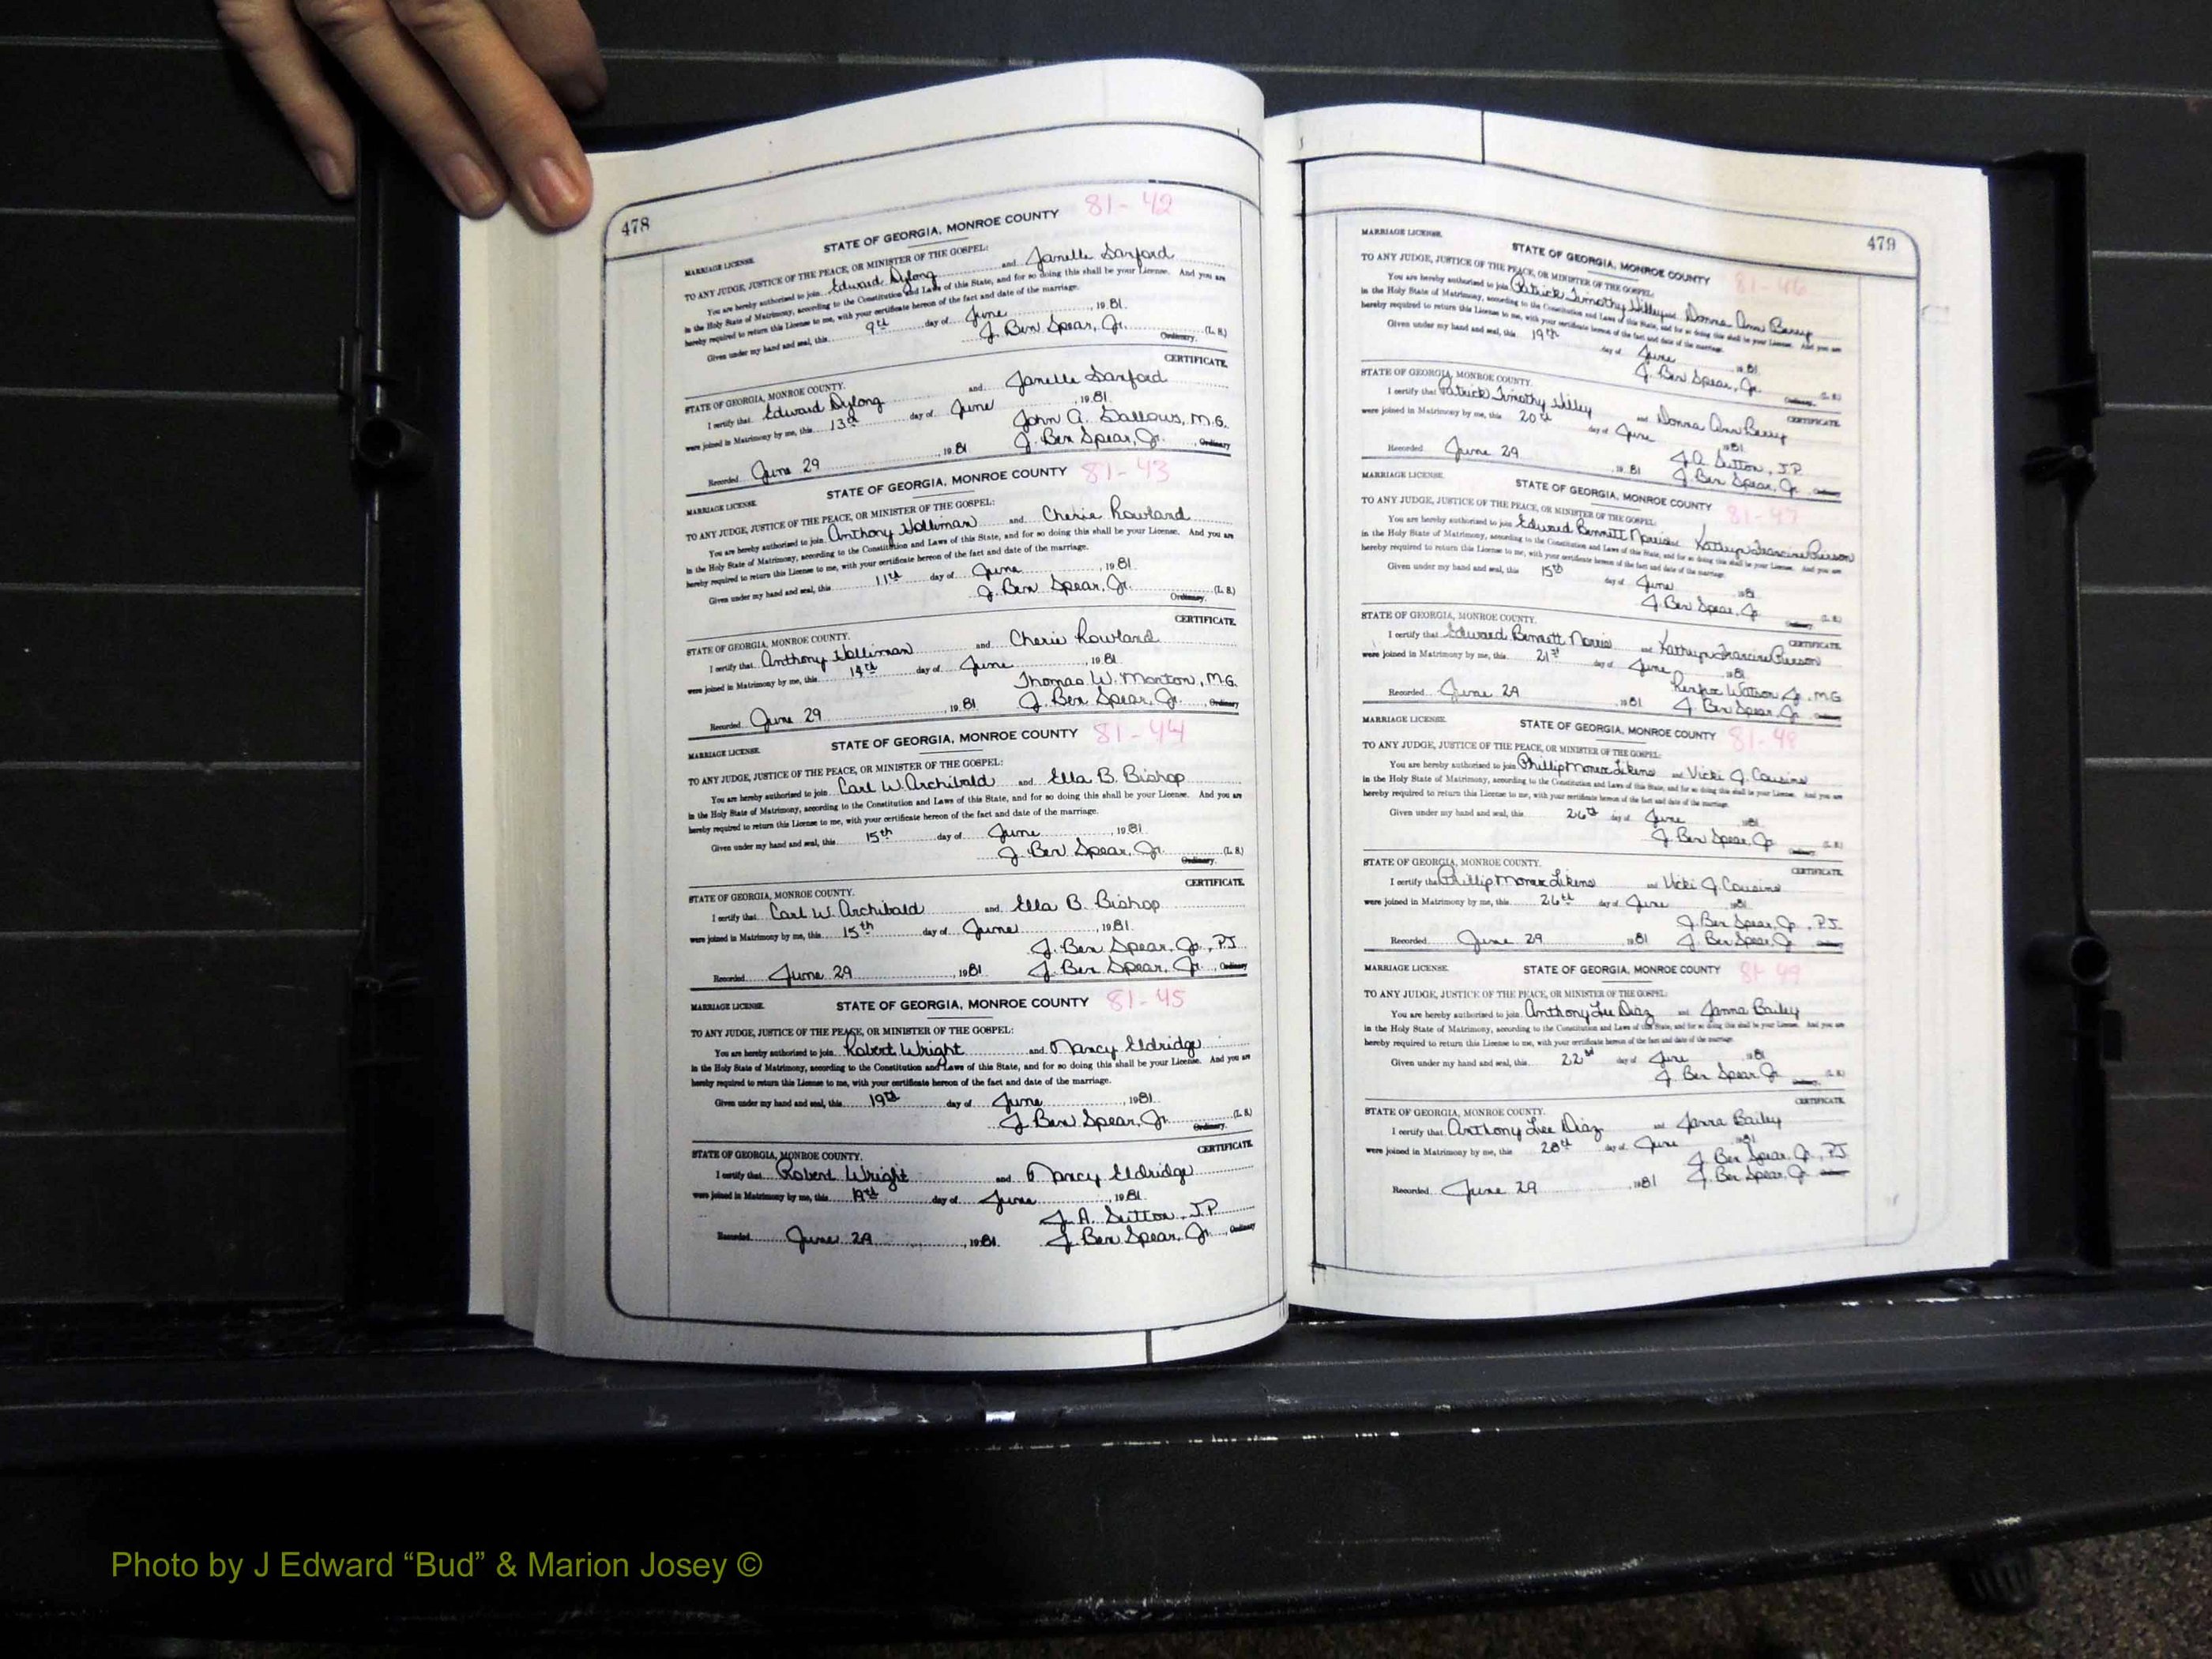 478
MARRIAGE LICENSE. STATE OF GEORGIA, MONROE COUNTY 81-42
TO ANY JUDGE, JUSTICE OF THE PEACE, OR MINISTER OF THE GOSPEL:
You are hereby authorized to join Edward Dylong and Janelle Sanford
in the Holy State of Matrimony, according to the Constitution and Laws of this State, and for so doing this shall be your License. And you are
hereby required to return this License to me, with your certificate hereon of the fact and date of the marriage.
Given under my hand and seal, this 9th day of June, 1981.
J. Ben Spear, Jr. (L. S.)
Ordinary.
CERTIFICATE.
STATE OF GEORGIA, MONROE COUNTY.
I certify that Edward Dylong and Janelle Sanford
were joined in Matrimony by me, this 13th day of June, 1981.
John A. Gallows, M.G.
Recorded June 29, 1981 J. Ben Spear, Jr., Ordinary
MARRIAGE LICENSE. STATE OF GEORGIA, MONROE COUNTY 81-43
TO ANY JUDGE, JUSTICE OF THE PEACE, OR MINISTER OF THE GOSPEL:
You are hereby authorized to join Anthony Holliman and Cherie Rowland
in the Holy State of Matrimony, according to the Constitution and Laws of this State, and for so doing this shall be your License. And you are
hereby required to return this License to me, with your certificate hereon of the fact and date of the marriage.
Given under my hand and seal, this 11th day of June, 1981.
J. Ben Spear, Jr. (L. S.)
Ordinary.
CERTIFICATE.
STATE OF GEORGIA, MONROE COUNTY.
I certify that Anthony Holliman and Cherie Rowland
were joined in Matrimony by me, this 14th day of June, 1981.
Thomas W. Morton, M.G.
Recorded June 29, 1981 J. Ben Spear, Jr., Ordinary
MARRIAGE LICENSE. STATE OF GEORGIA, MONROE COUNTY 81-44
TO ANY JUDGE, JUSTICE OF THE PEACE, OR MINISTER OF THE GOSPEL:
You are hereby authorized to join Carl W. Archibald and Ella B. Bishop
in the Holy State of Matrimony, according to the Constitution and Laws of this State, and for so doing this shall be your License. And you are
hereby required to return this License to me, with your certificate hereon of the fact and date of the marriage.
Given under my hand and seal, this 15th day of June, 1981.
J. Ben Spear, Jr. (L. S.)
Ordinary.
CERTIFICATE.
STATE OF GEORGIA, MONROE COUNTY.
I certify that Carl W. Archibald and Ella B. Bishop
were joined in Matrimony by me, this 15th day of June, 1981.
J. Ben Spear, Jr., P.J.
Recorded June 29, 1981 J. Ben Spear, Jr., Ordinary
MARRIAGE LICENSE. STATE OF GEORGIA, MONROE COUNTY 81-45
TO ANY JUDGE, JUSTICE OF THE PEACE, OR MINISTER OF THE GOSPEL:
You are hereby authorized to join Robert Wright and Nancy Eldridge
in the Holy State of Matrimony, according to the Constitution and Laws of this State, and for so doing this shall be your License. And you are
hereby required to return this License to me, with your certificate hereon of the fact and date of the marriage.
Given under my hand and seal, this 19th day of June, 1981.
J. Ben Spear, Jr. (L. S.)
Ordinary.
CERTIFICATE.
STATE OF GEORGIA, MONROE COUNTY.
I certify that Robert Wright and Nancy Eldridge
were joined in Matrimony by me, this 19th day of June, 1981.
J. A. Sutton, J.P.
Recorded June 29, 1981 J. Ben Spear, Jr., Ordinary
479
MARRIAGE LICENSE. STATE OF GEORGIA, MONROE COUNTY 81-46
TO ANY JUDGE, JUSTICE OF THE PEACE, OR MINISTER OF THE GOSPEL:
You are hereby authorized to join Patrick Timothy Willey and Donna Ann Berry
in the Holy State of Matrimony, according to the Constitution and Laws of this State, and for so doing this shall be your License. And you are
hereby required to return this License to me, with your certificate hereon of the fact and date of the marriage.
Given under my hand and seal, this 19th day of June 1981.
J. Ben Spear, Jr. (L. S.)
Ordinary.
CERTIFICATE.
STATE OF GEORGIA, MONROE COUNTY.
I certify that Patrick Timothy Willey and Donna Ann Berry
were joined in Matrimony by me, this 20th day of June 1981.
J. A. Sutton, J.P.
Recorded June 29, 1981 J. Ben Spear, Jr. Ordinary
MARRIAGE LICENSE. STATE OF GEORGIA, MONROE COUNTY 81-47
TO ANY JUDGE, JUSTICE OF THE PEACE, OR MINISTER OF THE GOSPEL:
You are hereby authorized to join Edward Bennett Norris and Kathryn Francine Pierson
in the Holy State of Matrimony, according to the Constitution and Laws of this State, and for so doing this shall be your License. And you are
hereby required to return this License to me, with your certificate hereon of the fact and date of the marriage.
Given under my hand and seal, this 15th day of June 1981.
J. Ben Spear, Jr. (L. S.)
Ordinary.
CERTIFICATE.
STATE OF GEORGIA, MONROE COUNTY.
I certify that Edward Bennett Norris and Kathryn Francine Pierson
were joined in Matrimony by me, this 21st day of June 1981.
Watson Jr., M.G.
Recorded June 29 1981 J. Ben Spear, Jr. Ordinary
MARRIAGE LICENSE. STATE OF GEORGIA, MONROE COUNTY 81-48
TO ANY JUDGE, JUSTICE OF THE PEACE, OR MINISTER OF THE GOSPEL:
You are hereby authorized to join Phillip Monroe Likens and Vicki J. Cousins
in the Holy State of Matrimony, according to the Constitution and Laws of this State, and for so doing this shall be your License. And you are
hereby required to return this License to me, with your certificate hereon of the fact and date of the marriage.
Given under my hand and seal, this 26th day of June 1981.
J. Ben Spear, Jr. (L. S.)
Ordinary.
CERTIFICATE.
STATE OF GEORGIA, MONROE COUNTY.
I certify that Phillip Monroe Likens and Vicki J. Cousins
were joined in Matrimony by me, this 26th day of June 1981.
J. Ben Spear, Jr., P.J.
Recorded June 29 1981 J. Ben Spear, Jr. Ordinary
MARRIAGE LICENSE. STATE OF GEORGIA, MONROE COUNTY 81-49
TO ANY JUDGE, JUSTICE OF THE PEACE, OR MINISTER OF THE GOSPEL:
You are hereby authorized to join Anthony Lee Diaz and Janna Bailey
in the Holy State of Matrimony, according to the Constitution and Laws of this State, and for so doing this shall be your License. And you are
hereby required to return this License to me, with your certificate hereon of the fact and date of the marriage.
Given under my hand and seal, this 22nd day of June 1981
J. Ben Spear, Jr. (L. S.)
Ordinary.
CERTIFICATE.
STATE OF GEORGIA, MONROE COUNTY.
I certify that Anthony Lee Diaz and Janna Bailey
were joined in Matrimony by me, this 28th day of June 1981
J. Ben Spear, Jr., P.J.
Recorded June 29 1981 J. Ben Spear, Jr. Ordinary
Photo by J Edward “Bud” & Marion Josey ©